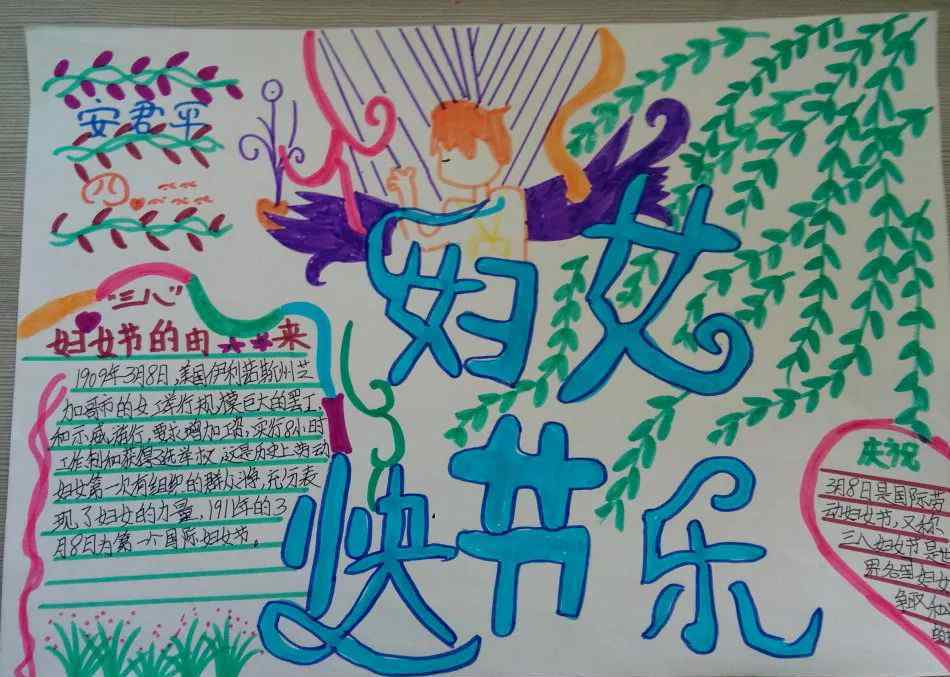 安君平
"三八"
妇女节的由来
1909年3月8日,美国伊利诺斯州芝
加哥市的女工举行规模巨大的罢工
和示威游行,要求增加工资,实行8小时
工作制和获得选举权,这是历史上劳动
妇女第一次有组织的群众斗争,充分表
现了妇女的力量,1911年的3
月8日为第一个国际妇女节。
妇女
节
快 乐
庆祝
3月8日是国际劳
动妇女节,又称
三八妇女节是世
界各国妇女
争取和